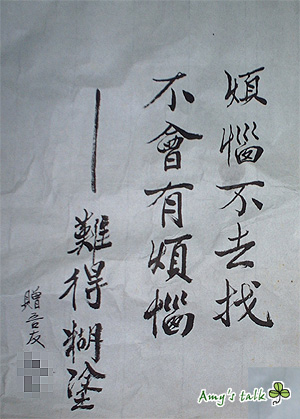 煩惱不去找
不會有煩惱
——難得糊塗
贈吾友
Amy's talk